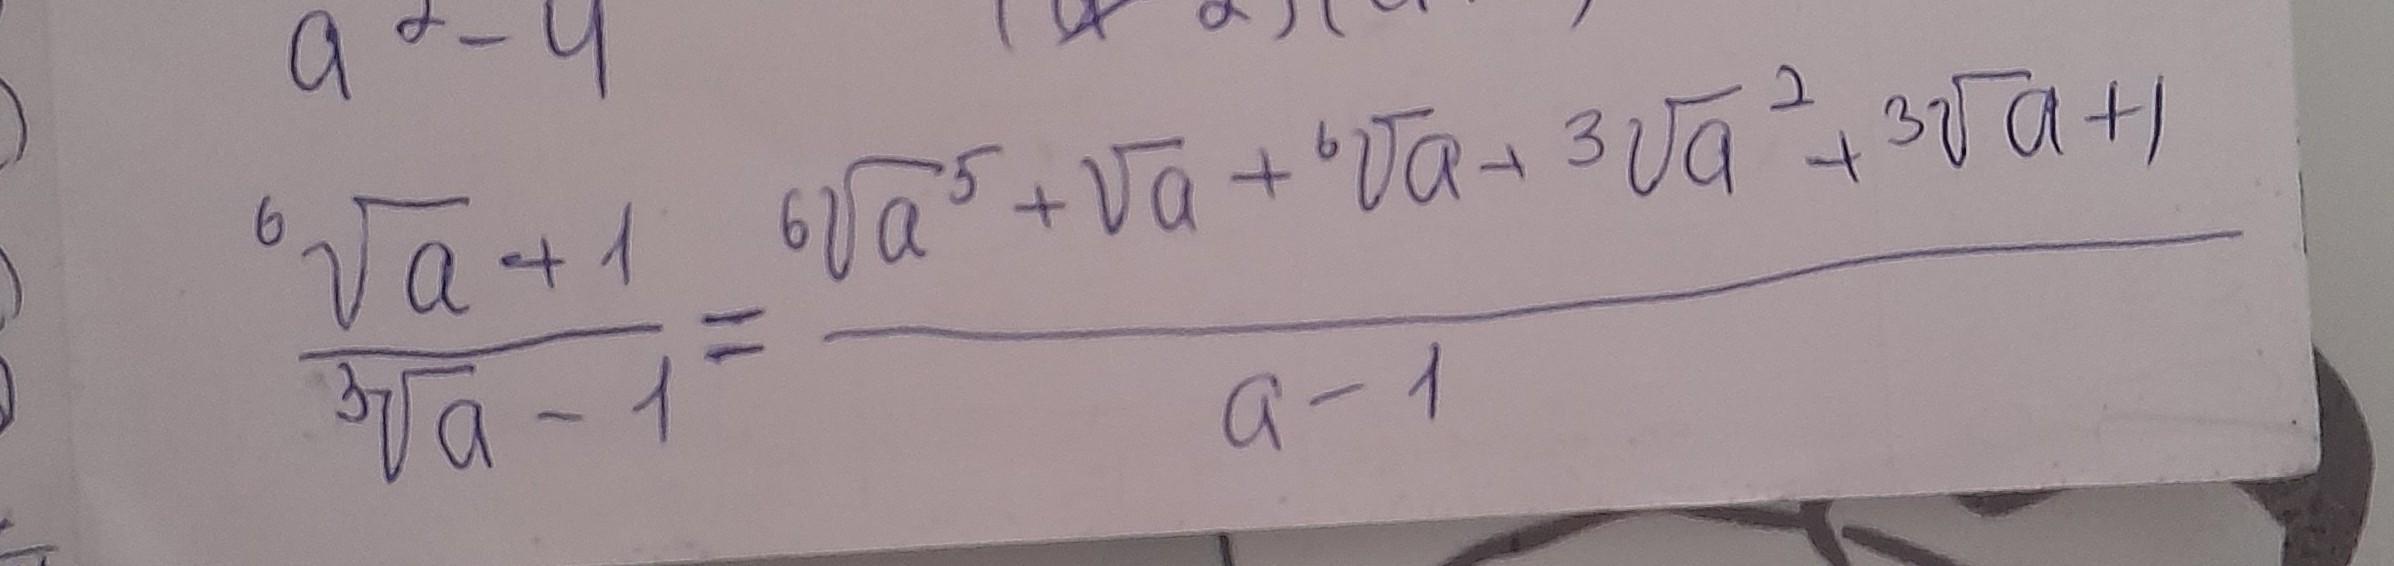 a² - 4
⁶√a + 1 / ³√a - 1 = ⁶√a⁵ + √a + ⁶√a + ³√a² + ³√a + 1 / a - 1